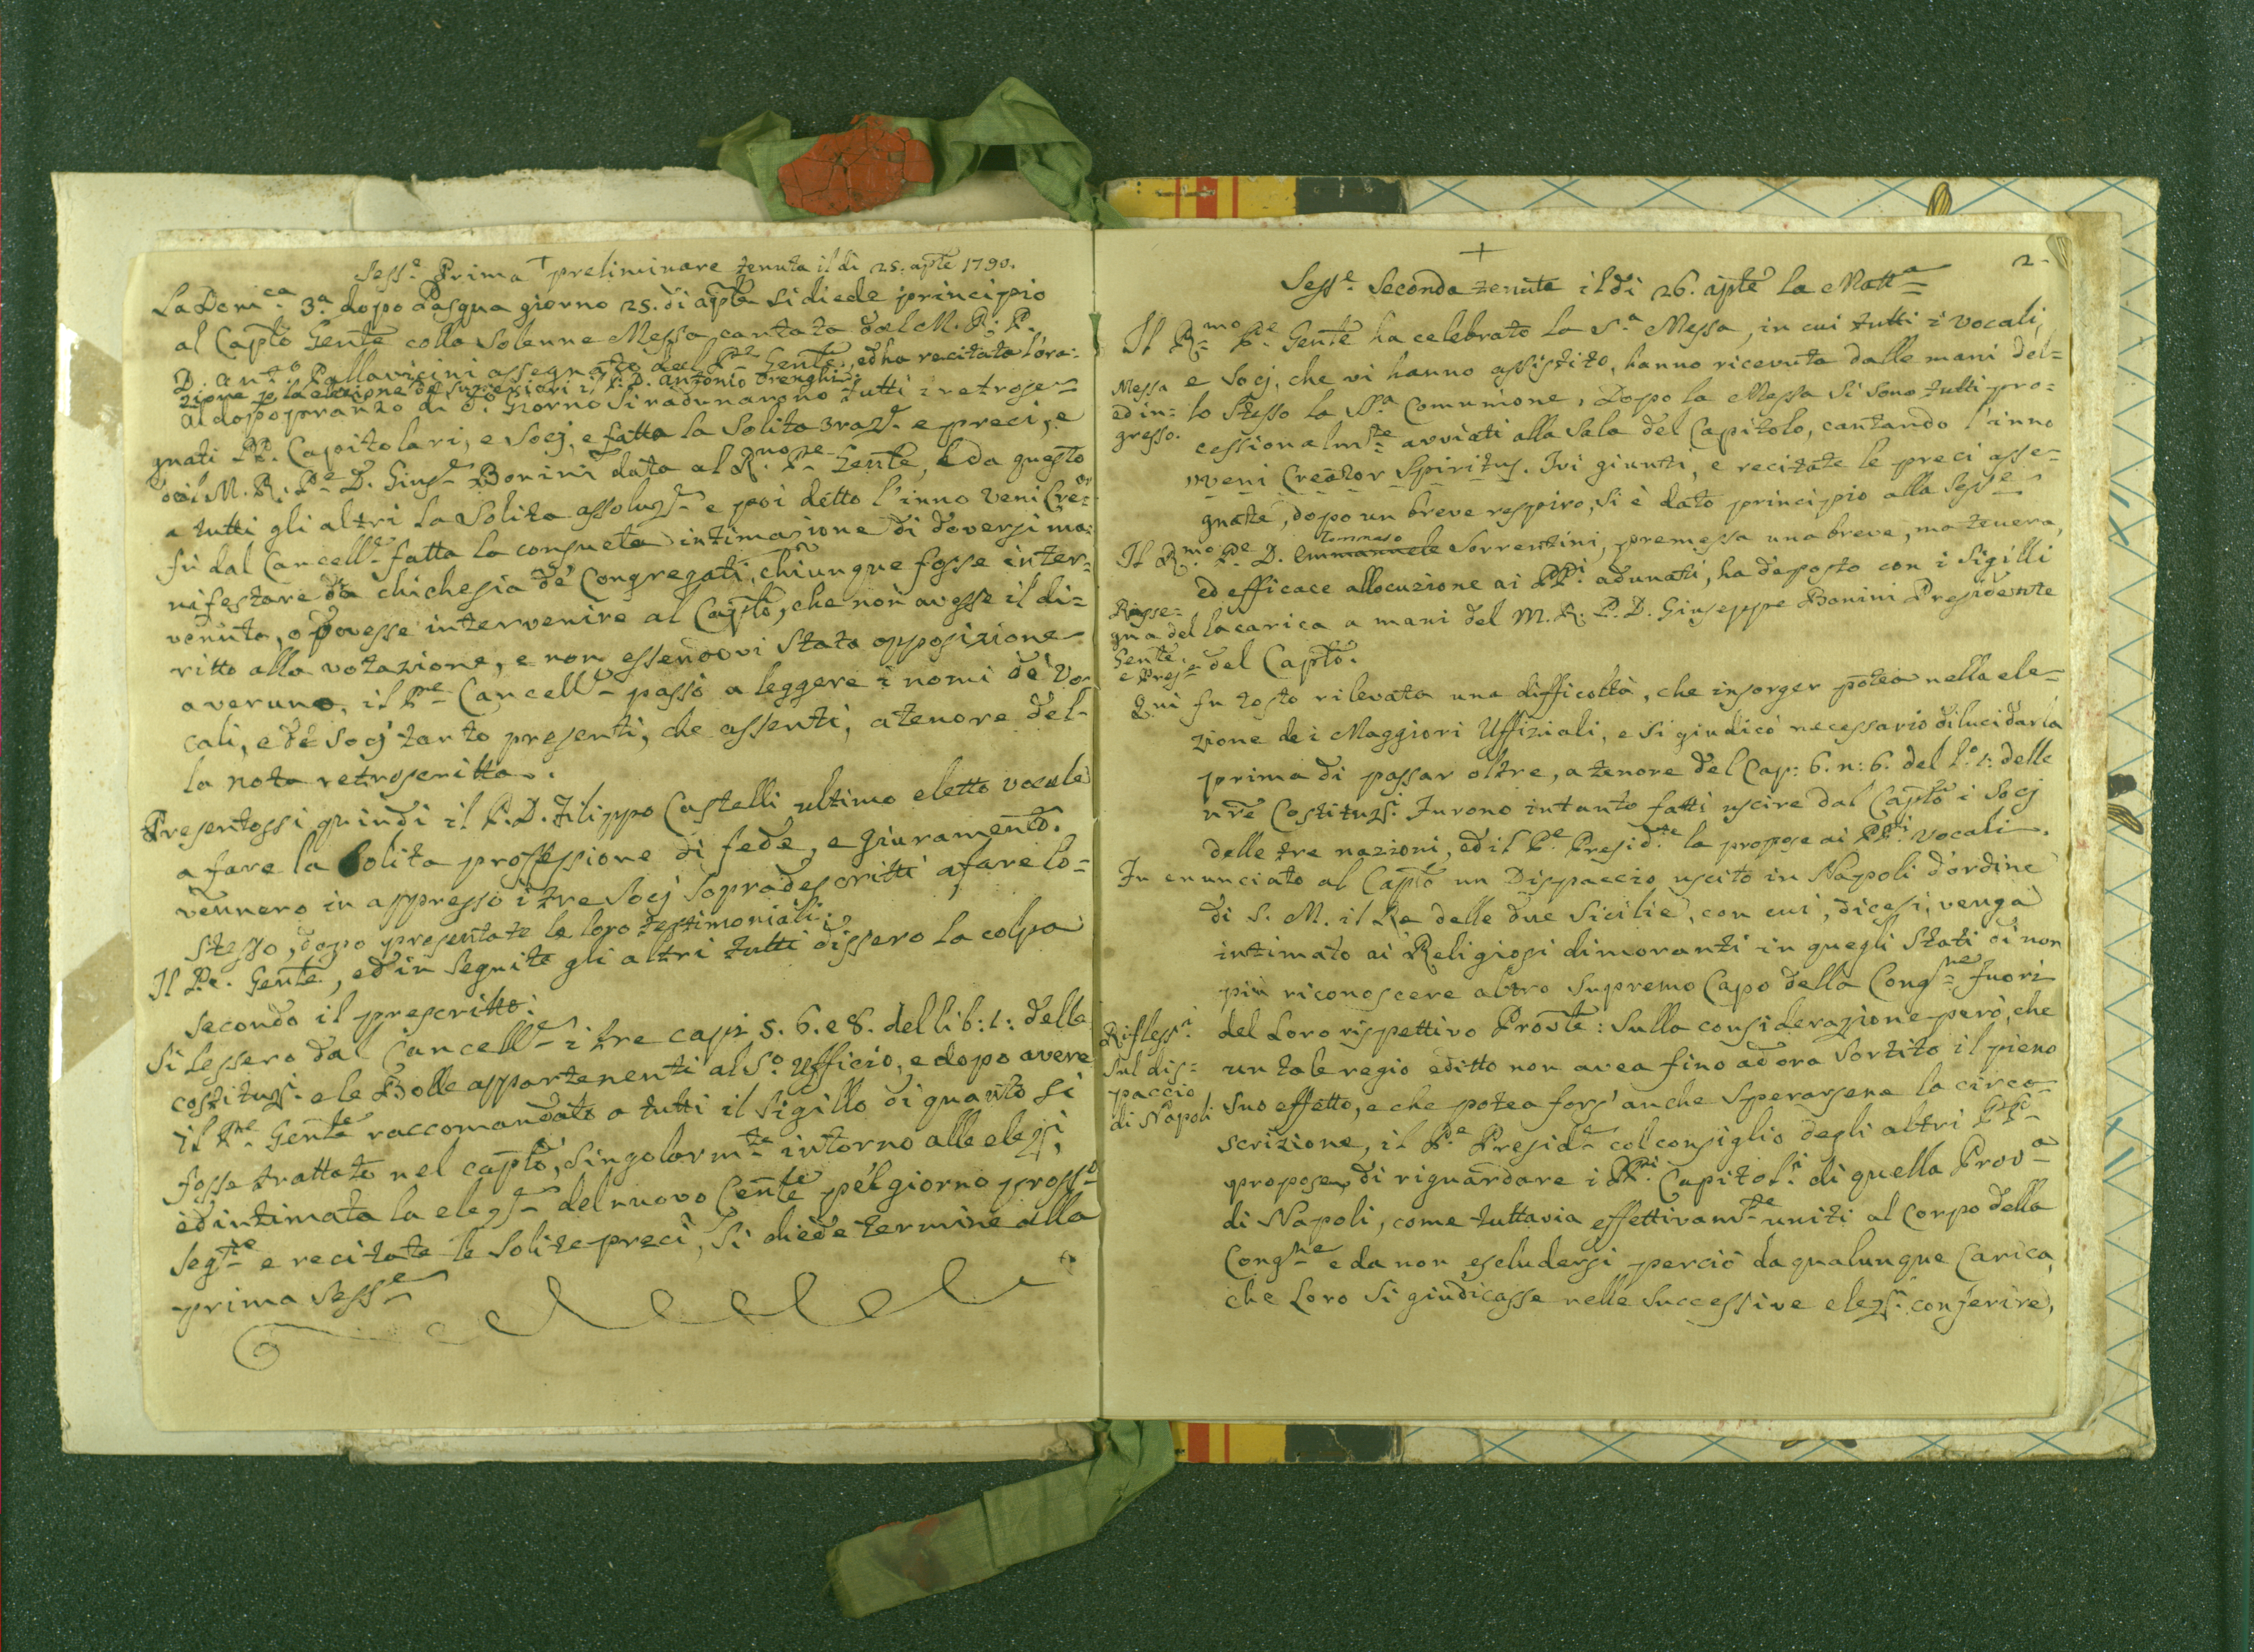 +
Sess.e Prima preliminare tenuta il di 25. aple 1790.
La Domca. 3.a dopo Pasqua giorno 25. di aple si diede principio
al Caplo Genle colla Solenne Messa cantata dal M. R. P.
D. Anto Pallavicini assegnato dal Pre Genle, ed ha recitata l'ora-
zione p la elezione de' Superiori il P. D. Antonio Trenghi:
Al dopopranzo di do. Giorno si radunarono tutti i retrose-
gnati PP. Capitolari, e Socj, e fatta la Solita e preci, e
M. R. Pe D. Giuse Bonini data al Rmo Pre Genle, e da questo
a tutti gli altri la Solita assoluze e poi detto l'inno Veni Crer
fù dal Cancelle fatta la consueta intimazione di doversi ma-
nifestare da chichesia de' Congregati, chiunque fosse inter-
venuto, o dovesse intervenire al Caplo, che non avesse il di-
ritto alla votazione, e non essendovi stata opposizione
a veruno, il Pre Cancelle passò a leggere i nomi de' Vo-
cali, e de Socj tanto presenti, che assenti, a tenore del-
la nota retroscritta.
Presentossi quindi il P. D. Filippo Castelli ultimo eletto vocale
a fare la Solita professione di fede, e giuramento.
vennero in appresso i tre Socj sopradescritti a fare lo-
stesso, dopo presentate le loro testimoniali.
Il Pe. Genle, ed in seguito gli altri tutti dissero la colpa
secondo il prescritto.
Si lessero dal Cancelle i tre capi 5. 6. e 8. del lib: 1: delle
costituzi e le Bolle appartenenti al So. Ufficio, e dopo avere
il Pre Genle raccomandato a tutti il Sigillo di quanto si
fosse trattato nel caplo, singolarmte intorno alle elezi,
ed intimata la eleze del nuovo Genle pel giorno prosso
segte e recitate le Solite preci, si diede termine alla
prima Sesse
+
2
Sess.e Seconda tenuta il dì 26. aple la Matta
Il Rmo Pe Genle ha celebrato la S.a Messa, in cui tutti i vocali,
Messa
ed in-
gresso.
e Socj, che vi hanno assistito, hanno ricevuta dalle mani del-
lo stesso la SS.a Comunione. Dopo la Messa si sono tutti pro-
cessionalmte avviati alla Sala del Capitolo, cantando l'inno
Veni Creator Spiritus. Ivi giunti, e recitate le preci asse-
gnate, dopo un breve respiro, si è dato principio alla Sesse
Tommaso
Il Rmo Pe D. Emmanuele Sorrentini, premessa una breve, ma tenera,
ed efficace allocuzione ai PPi adunati, ha deposto con i Sigilli
Risse-
gna del
Genle.
e Prese
la carica a mani del M. R. P. D. Giuseppe Bonini Presidente
del Caplo.
Qui fu tosto rilevata una difficoltà, che insorger potea nella ele-
zione dei Maggiori Uffiziali, e si giudicò necessario dilucidarla
prima di passar oltre, a tenore del Cap: 6. n: 6. del l.o 1: delle
nre Costituzi. Furono intanto fatti uscire dal Caplo i Socj
delle tre nazioni, ed il Pe Preside la propose ai PPi Vocali.
Fu enunciato al Caplo un Dispaccio uscito in Napoli d'ordine
di S. M. il Re delle due Sicilie, con cui, dicesi, venga
intimato ai Religiosi dimoranti in quegli Stati di non
più riconoscere altro Supremo Capo della Congne fuori
Riflessi.
sul dis-
paccio
di Napoli
del Loro rispettivo Provle: Sulla considerazione però, che
un tale regio editto non avea fino ad ora Sortito il pieno
suo effetto, e che potea fors' anche Sperarsene la circo-
scrizione, il Pe Preside col consiglio degli altri PPi
propose di riguardare i PPi Capitoli di quella Prova
di Napoli, come tuttavia effettivamte uniti al Corpo della
Congne e da non escludersi perciò da qualunque Carica,
che Loro si giudicasse nelle successive elezi. conferire,